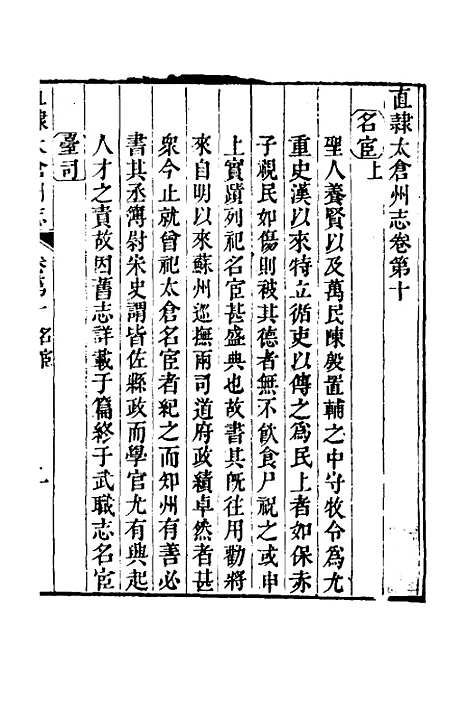 直隷太倉州志卷第十
名宦上
聖人養賢以及萬民陳殷置輔之中守牧令爲尤
重史漢以來特立循吏以傳之爲民上者如保赤
子視民如傷則被其德者無不飲食尸祝之或申
上實蹟列祀名宦甚盛典也故書其旣往用勸將
來自明以來蘇州巡撫兩司道府政績卓然者甚
衆今止就曾祀太倉名宦者紀之而知州有善必
書其丞簿尉宋史謂皆佐縣政而學官尤有興起
人才之責故因舊志詳載于篇終于武職志名宦
臺司
直隷太倉州志
卷第十名宦
一